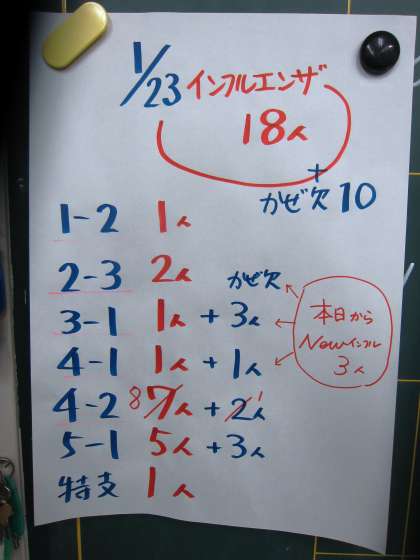 1/23 インフルエンザ
18人
+
かぜ欠 10
1-2 1人
2-3 2人
かぜ欠
3-1 1人 + 3人
4-1 1人 + 1人
4-2 8 7人 + 2人 1
5-1 5人 + 3人
特支 1人
本日から
Newインフル
3人